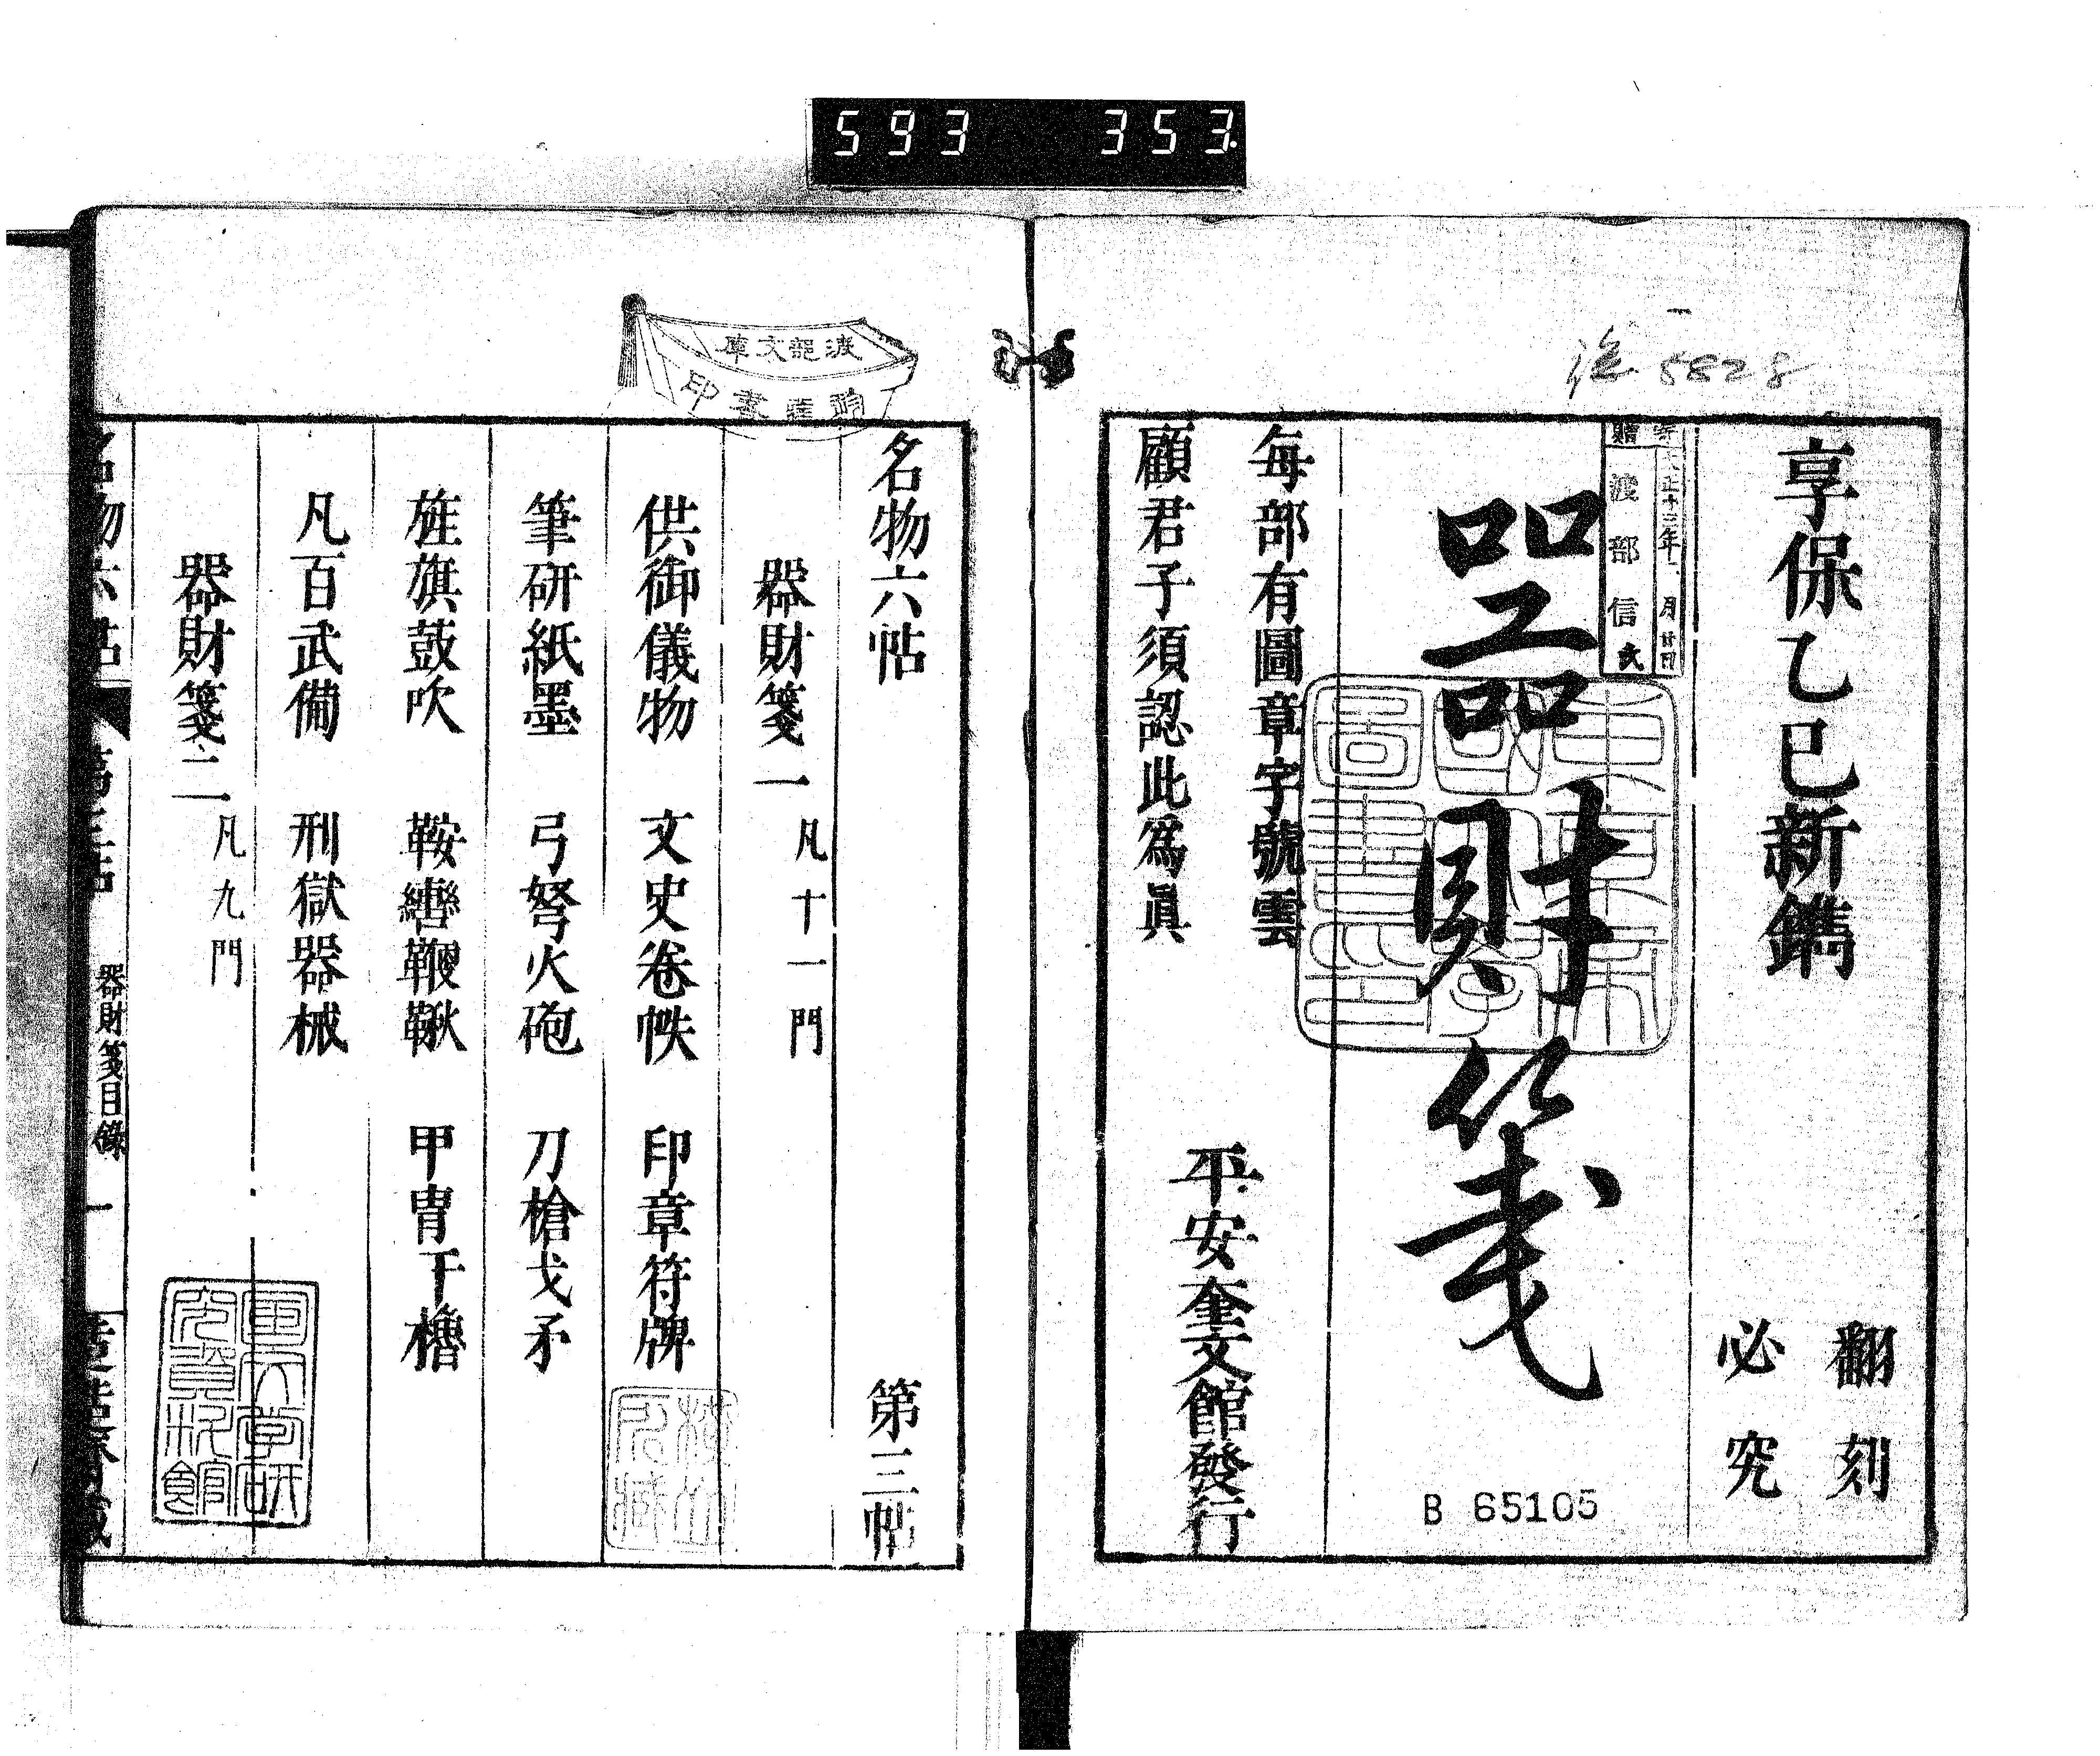 593 353
5828
享保乙巳新鐫
翻刻
必究
寄贈
大正十三年二月廿日
渡部信
器財箋
B 65105
每部有圖章字號雲
顧君子須認此爲眞
平安奎文館發行
渡部文庫
印
名物六帖 第三帖
器財箋一 凡十一門
供御儀物 文史卷帙 印章符牌
筆硏紙墨 弓弩火砲 刀槍戈矛
旌旗鼓吹 鞍轡鞭鞦 甲冑干櫓
凡百武備 刑獄器械
器財箋二 凡九門
名物六帖
器財箋目錄 一